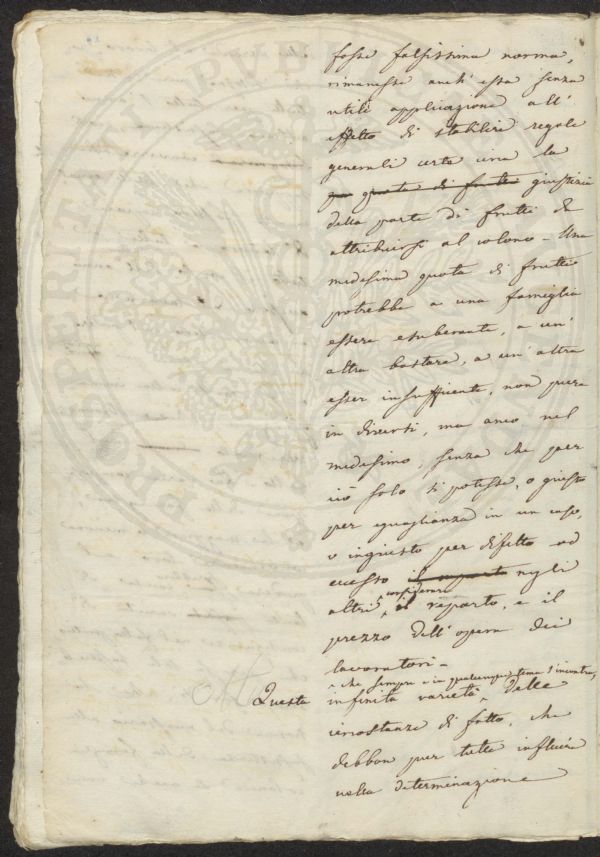 fosse falsissima norma,
rimanesse anch'essa senza
utile applicazione all'
effetto di stabilire regole
generali certe circa la
quota di frutti giustizia
della parte di frutti da
attribuirsi al colono – Una
medesima quota di frutti
potrebbe a una famiglia
essere esuberante, a un'
altra bastare, a un'altra
esser insufficiente, non pure
in diversi, ma anco nel
medesimo, senza che per
ciò solo si potesse, o giusto
per eguaglianza in un caso,
o ingiusto per difetto od
eccesso il reparto negli
altri considerare il reparto, e il
prezzo dell'opera dei
lavoratori –
che sempre e in qualunque tema s'incontra,
Questa infinita varietà delle
circostanze di fatto, che
debbon per tutto influire
nella determinazione
PROSPERITATI PUBLICAE